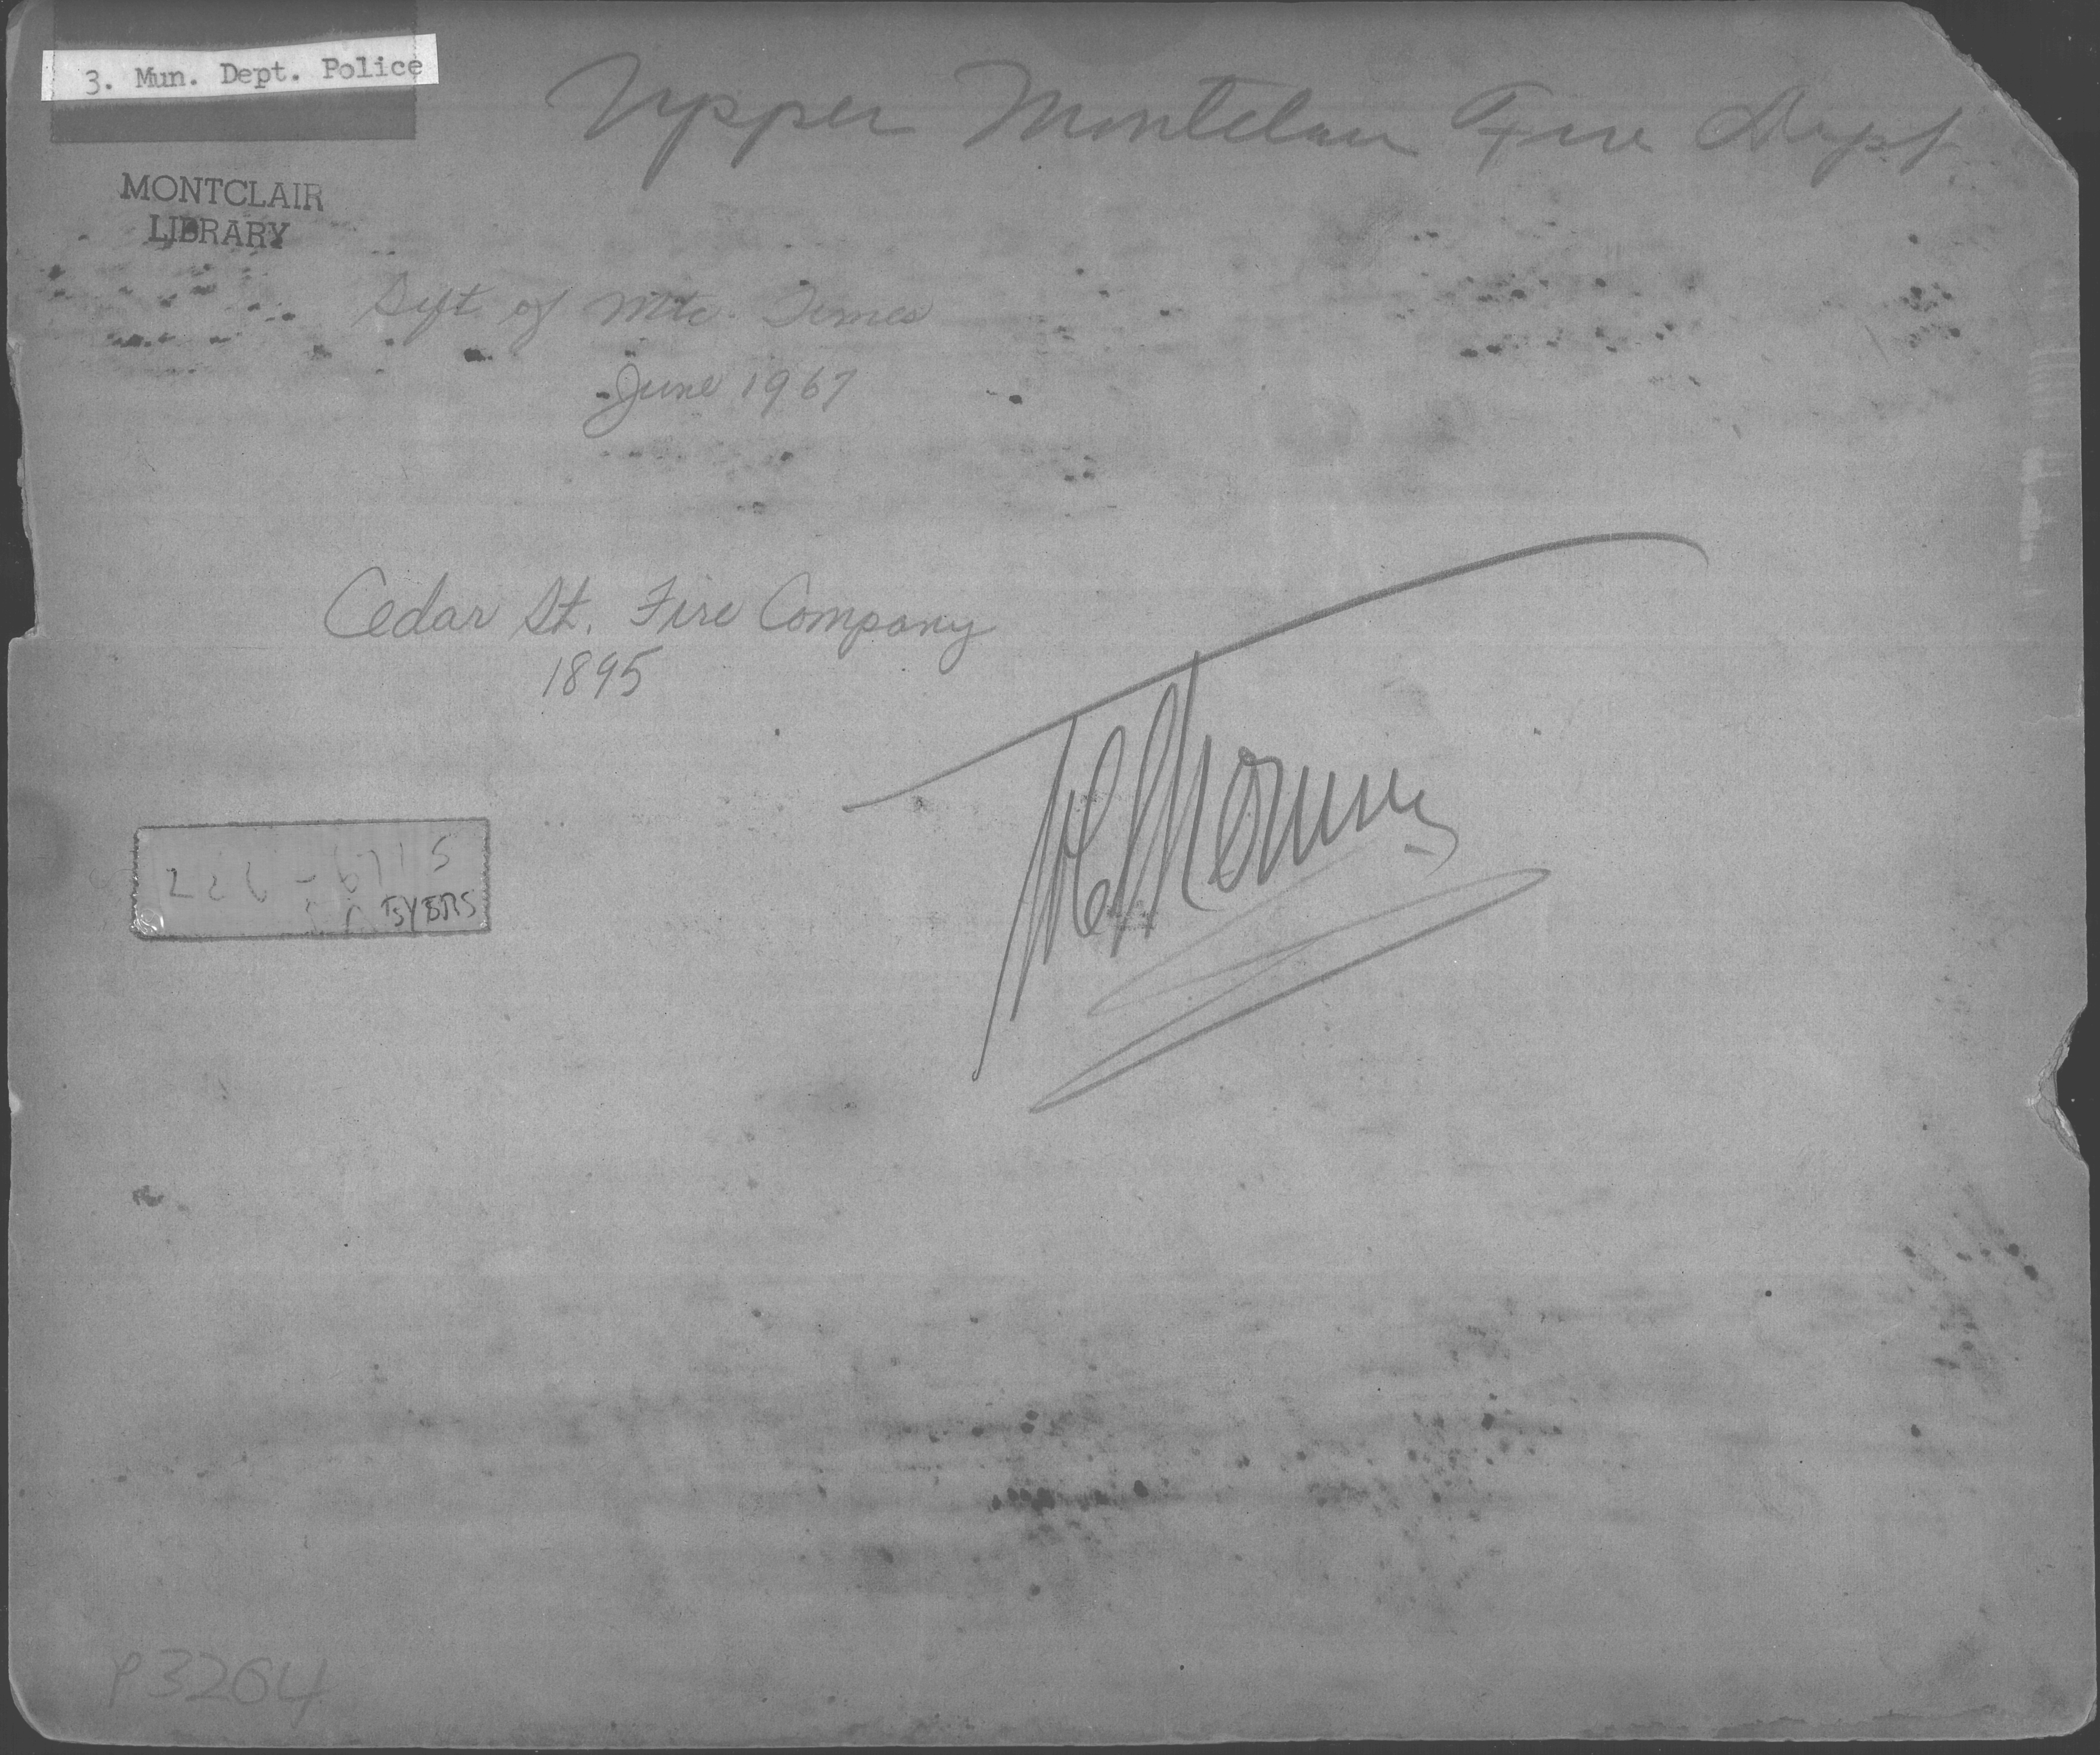 3. Mun. Dept. Police
Upper Montclair Fire Dept.
MONTCLAIR
LIBRARY
Gift of Mtc. Times
June 1967
Cedar St. Fire Company
1895
P3264